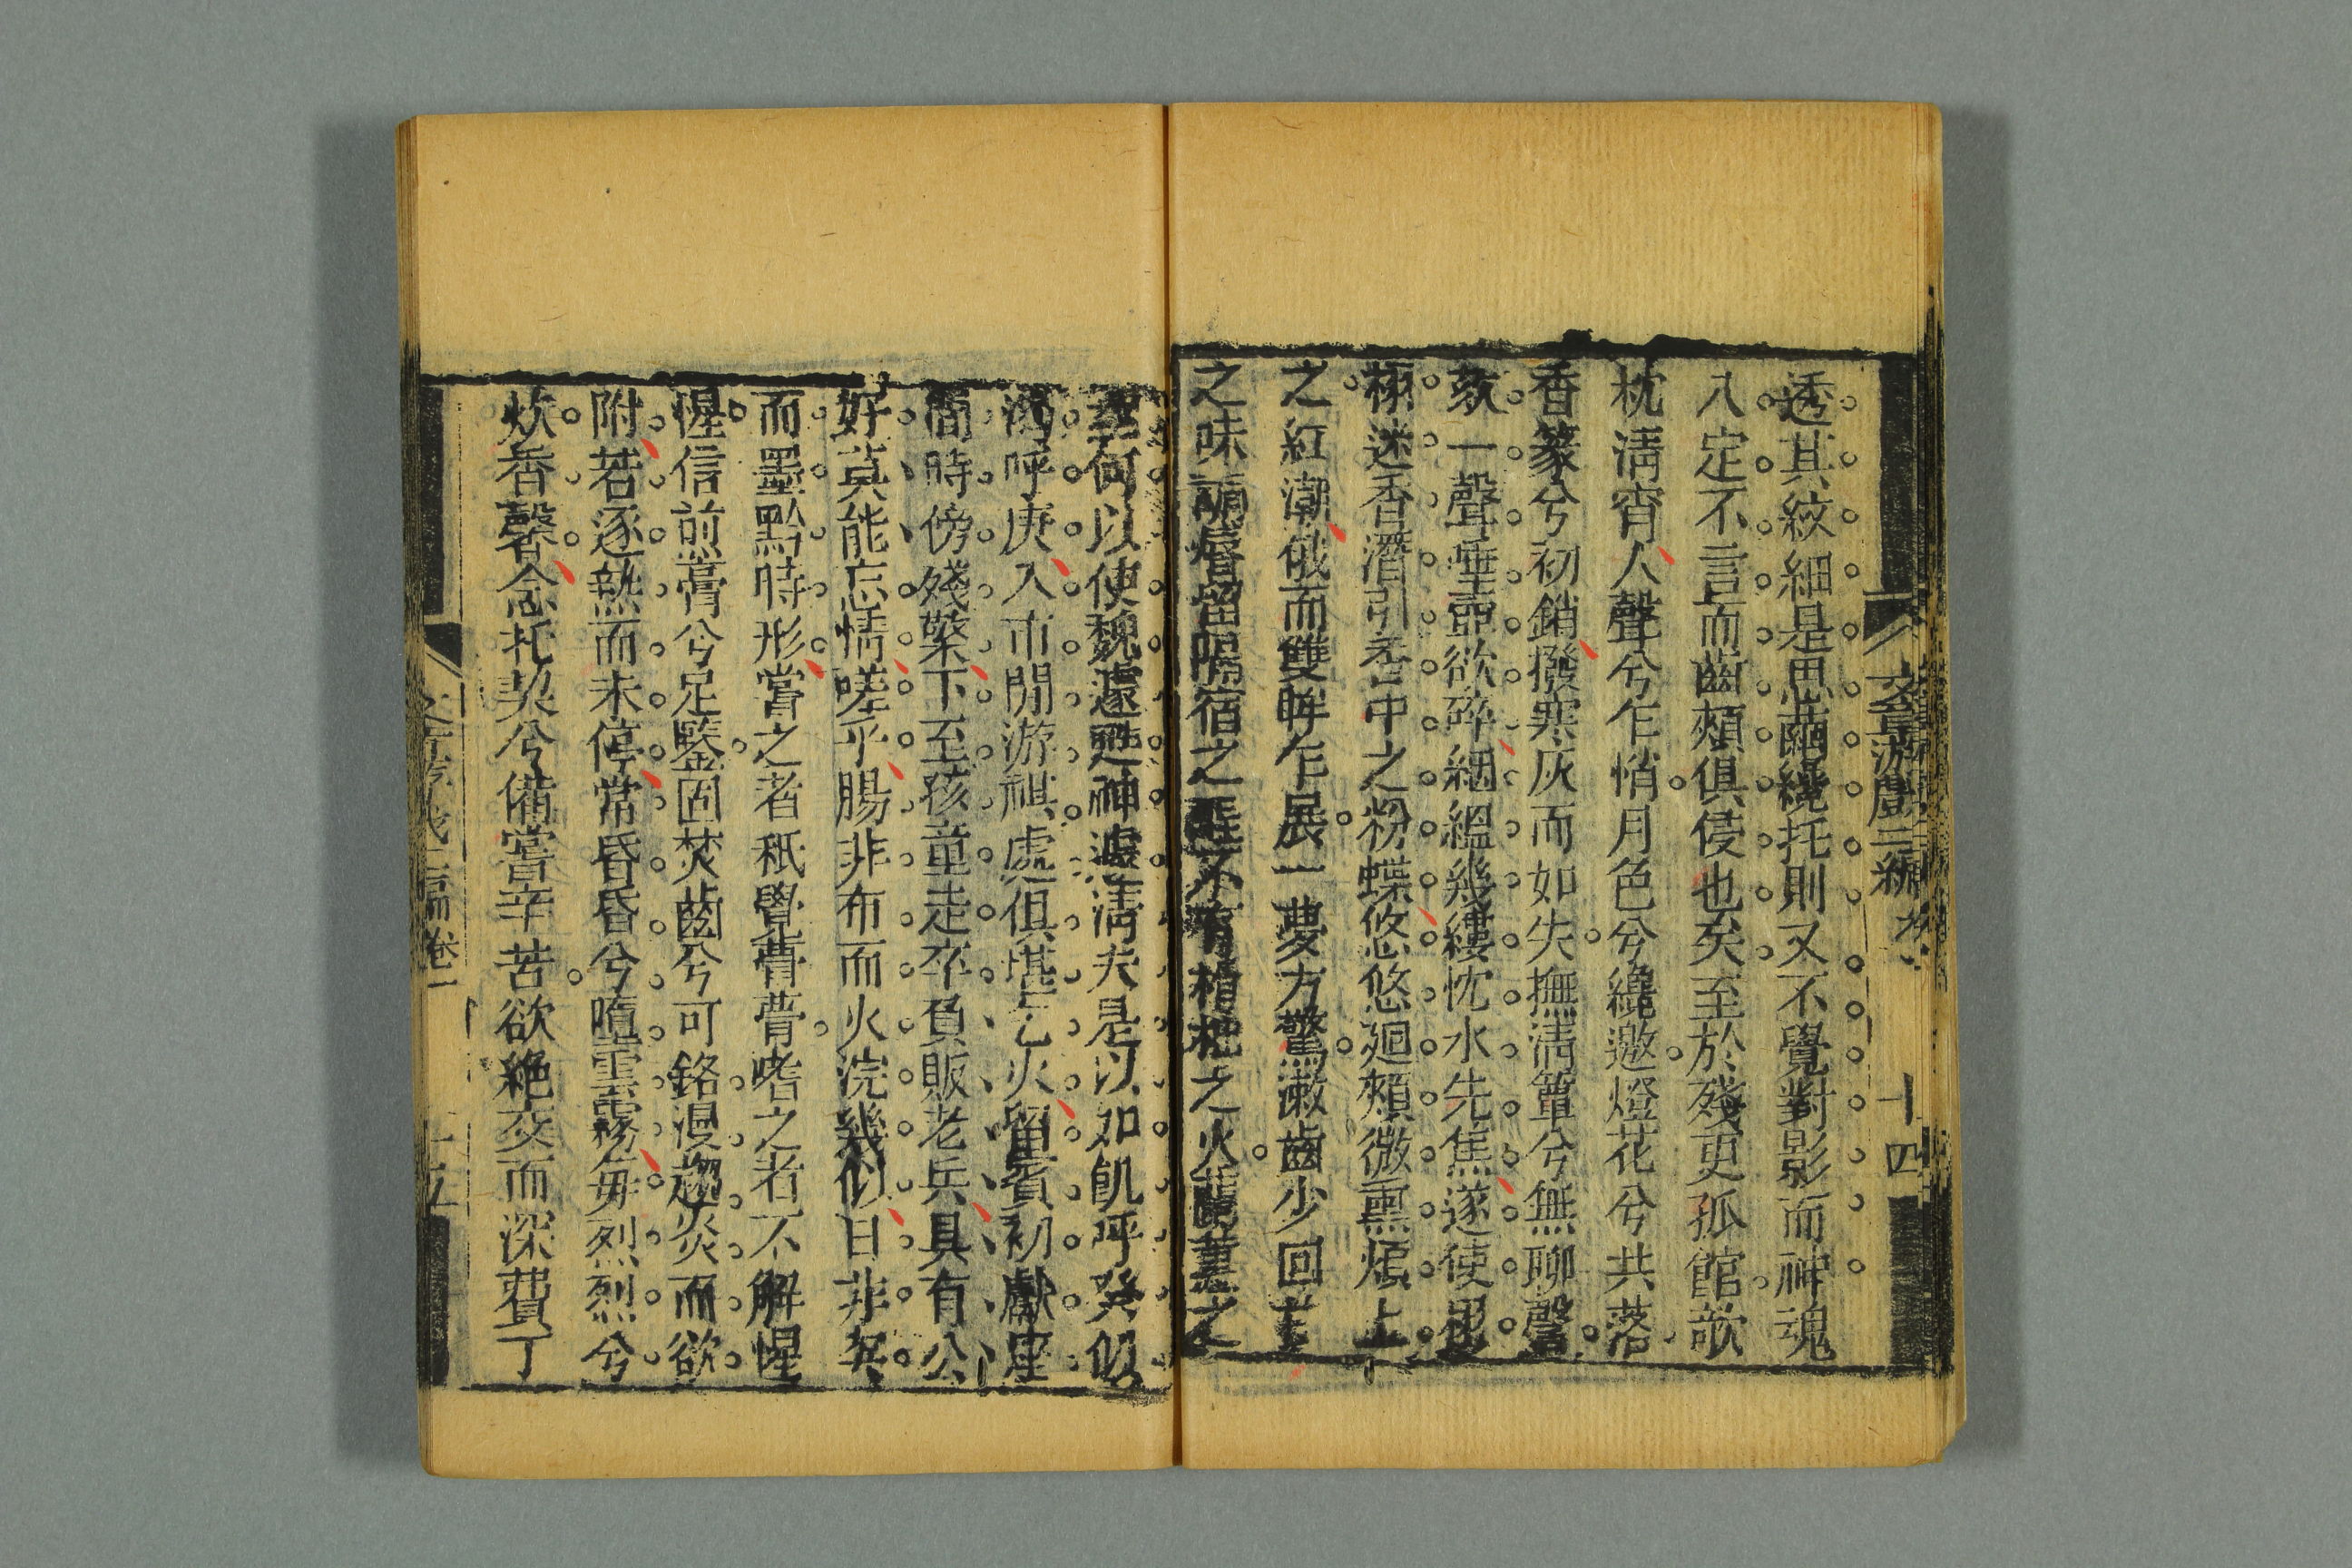 文章游戲二編 卷一 十四
透其紋細是思繭纔托則又不覺對影而神魂
入定不言而齒頰俱侵也矣至於殘更孤館欹
枕清宵人聲兮乍悄月色兮纔邀燈花兮共落
香篆兮初銷撥寒灰而如失撫清簟兮無聊聲
欬一聲唾壺欲碎絪縕幾縷枕水先焦遂使
栩迷香潛引之粉蝶悠悠廻頰微熏煩上
之紅潮俄而雙眸乍展一夢方驚漱齒少回
之味唇留隔宿之不之火之
何以使魏神清夫是以如飢呼癸似
渴呼庚入市閒游祺處俱堪乞火留賓初獻座
間時傍殘檠下至孩童走卒負販老兵具有公
好莫能忘情嗟乎腸非布而火浣幾似日非契
而墨黔時形嘗之者秪覺瞢瞢嗜之者不解惺
惺信煎膏兮足鑒固焚齒兮可銘漫趨炎而欲
附若逐熱而未停常昏昏兮墮雲霧每烈烈兮
炊香馨念托契兮備嘗辛苦欲絕交而深費丁
卷一